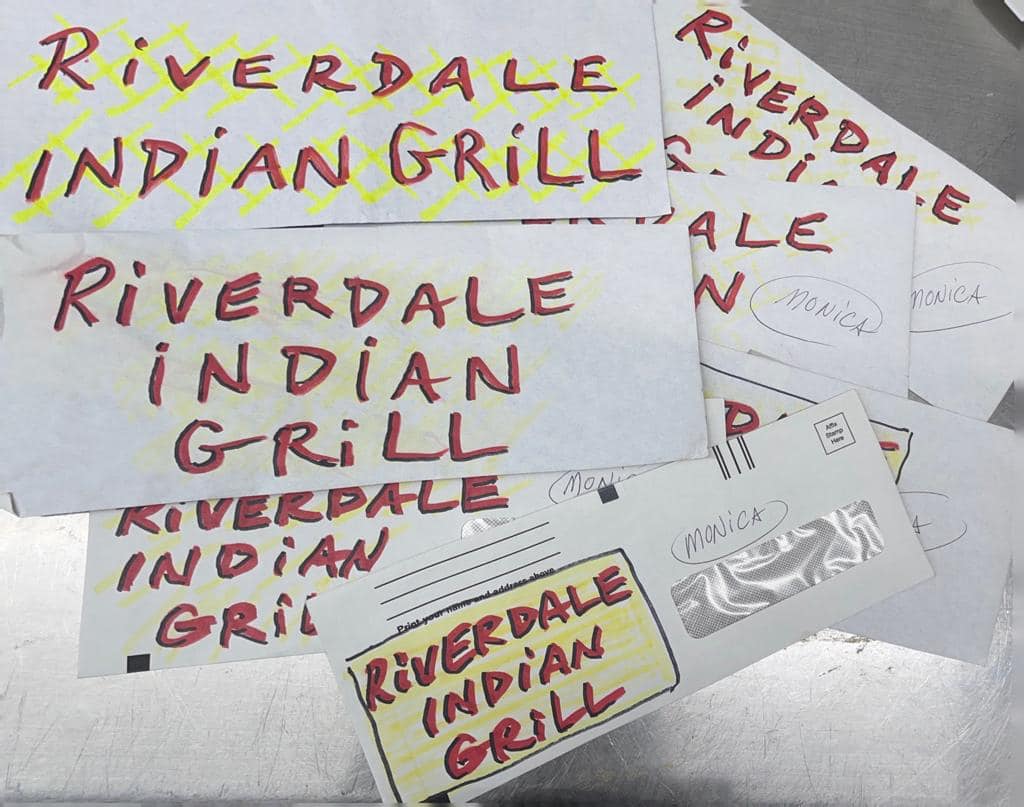 RiVERDALE
INDiAN GRiLL
RiVERDALE
iNDi
G
DALE
N
MONiCA
MONiCA
RiVERDALE
iNDiAN
GRiLL
MONi
RiVERDALE
INDiAN
GRiL
Affix
Stamp
Here
MONiCA
Print your name and address above
RiVERDALE
INDiAN
GRiLL